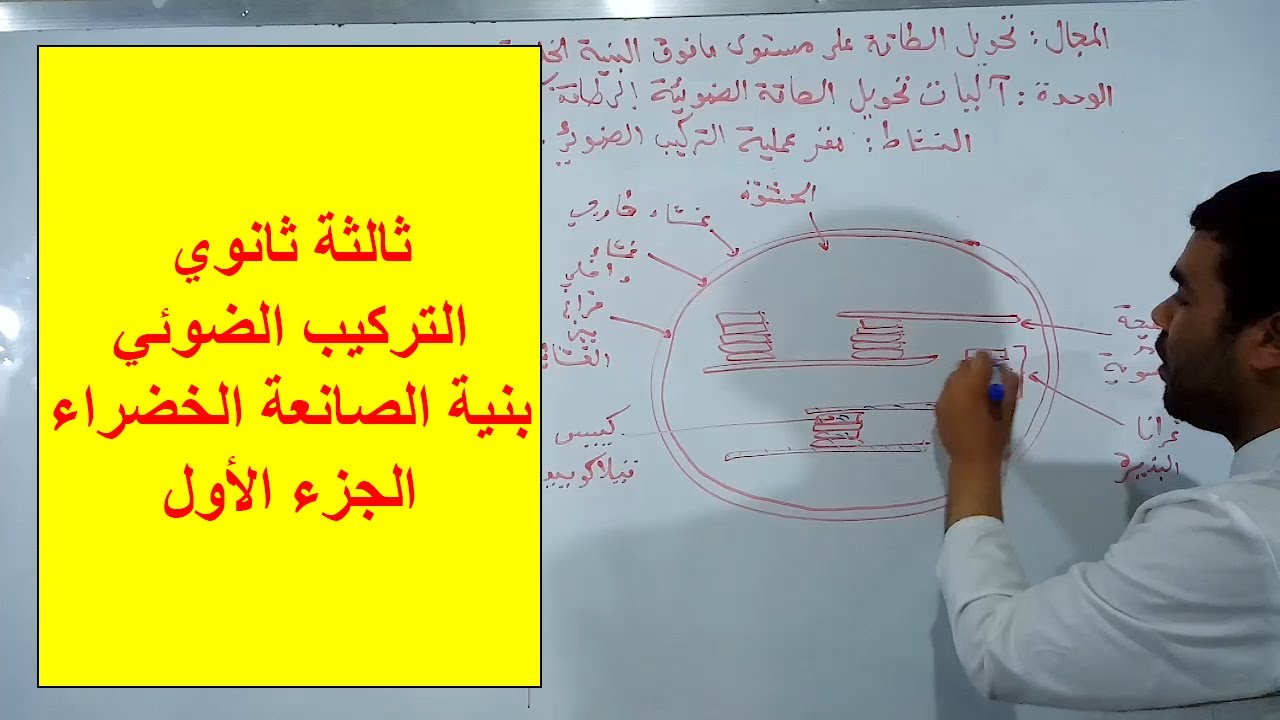 المجال: تحويل الطاقة على مستوى ما فوق البنية
الوحدة: آليات تحويل الطاقة الضوئية إلى طاقة
النشاط: مقر عملية التركيب الضوئي
ثالثة ثانوي
التركيب الضوئي
بنية الصانعة الخضراء
الجزء الأول
الحشوة
غشاء خارجي
غشاء
داخلي
فراغ
بين
كييس
تيلاكوييد
غرانا
البذيرة